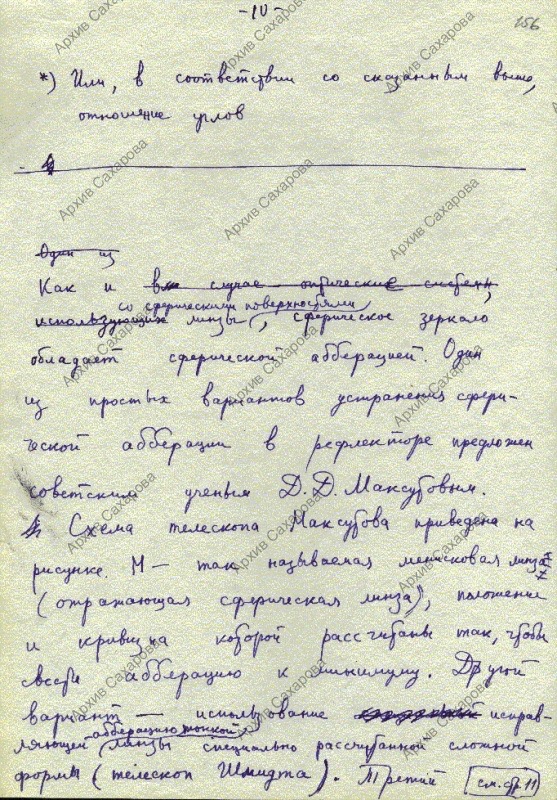 -10-
156
*) Или, в соответствии со сказанным выше,
отношение углов
Один из
Как и в случае оптические систем,
со сферическими поверхностями
использующих линзы, сферическое зеркало
обладает сферической абберацией. Один
из простых вариантов устранения сфери-
ческой абберации в рефлекторе предложен
советским ученым Д.Д. Максутовым.
Схема телескопа Максутова приведена на
рисунке. М — так называемая менисковая линза
(отражающая сферическая линза), положение
и кривизна которой рассчитаны так, чтобы
свести абберацию к минимуму. Другой
вариант — использование исправ-
абберацию тонкой
ляющей линзы специально рассчитанной сложной
формы (телескоп Шмидта). Третий см. стр. 11
Архив Сахарова